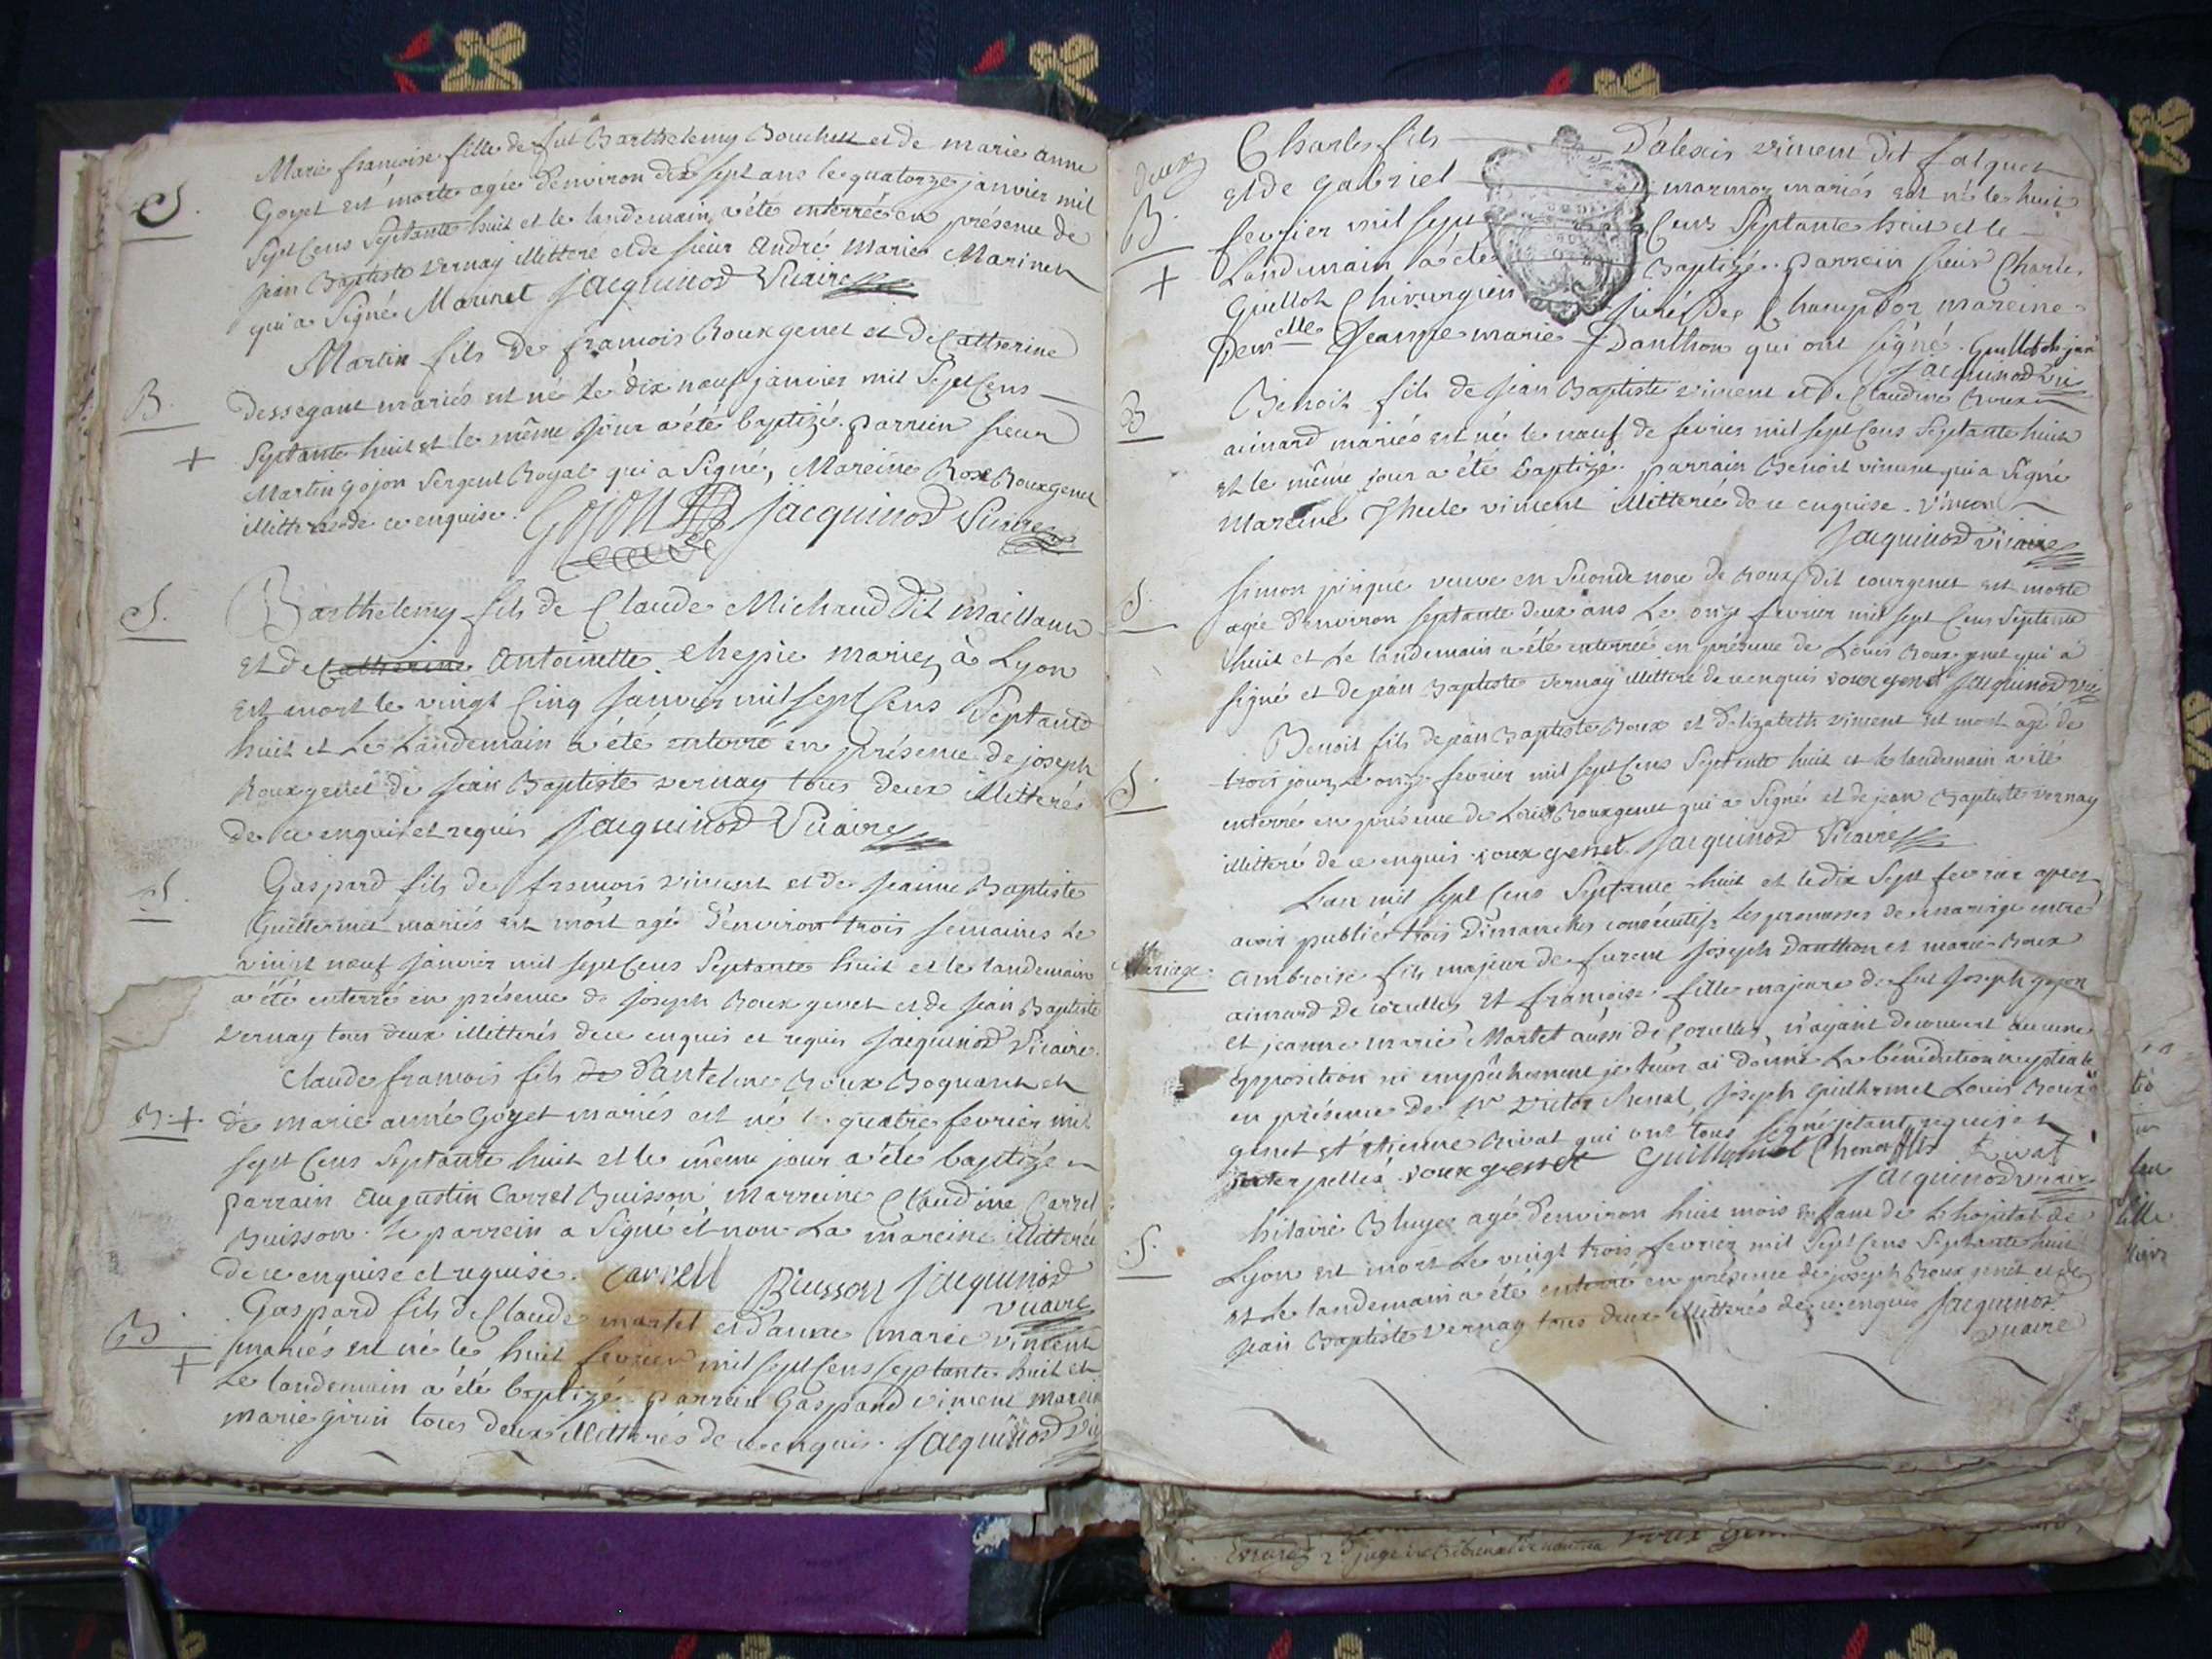 Marie francoise fille de fut Barthelemy Bouchet et de marie anne
S. Goyet est morte agée d'environ dix sept ans le quatorze janvier mil
Sept Cens Septante huit et le landemain a été enterrée en présence de
jean Baptiste Vernay illitteré et de sieur André Marie Marinet
qui a Signé Marinet Jacquinod Vicaire
Martin fils de francois Rouxgenet et de Catherine
B. dessegaut mariés est né le dix neuf janvier mil Sept Cens
+ Septante huit et le même jour a été baptizé. parrein sieur
Martin gojon Sergent Royal qui a Signé, Mareine Rouxgenet
illitterée de ce enquise. Gojon Jacquinod Vicaire
S. Barthelemy fils de Claude Michaud dit maillant
et de Catherine Antoinette chepie mariez à Lyon
est mort le vingt Cinq Janvier mil sept Cens Septante
huit et Le Landemain a été enterré en présence de joseph
Rouxgenet de jean Baptiste vernay tous deux illitterés
de ce enquis et requis Jacquinod Vicaire
S. Gaspard fils de francois vincent et de Jeanne Baptiste
Guillermet mariés est mort agé d'environ trois semaines Le
vingt neuf Janvier mil sept Cens Septante huit et le landemain
a été enterré en présence de joseph Roux genet et de jean Baptiste
Vernay tous deux illitterés de ce enquis et requis Jacquinod Vicaire.
Claude francois fils de d'antelme Roux Boquaret et
B. + de marie anne Goyet mariés est né le quatre fevrier mil
sept Cens Septante huit et le même jour a été baptizé
parrain Augustin Carrel Buisson Marreine Claudine Carrel
Buisson. Le parrein a Signé et non La mareine illitterée
de ce enquise et requise. Carrell Buisson Jacquinod
vicaire
B. Gaspard fils de Claude martel et d'anne marie vincent
mariés est né le huit fevrier mil sept Cens septante huit et
+ Le landemain a été baptizé parrein Gaspard vincent Marein
marie girin tous deux illitterés de ce enquis. Jacquinod Vic
deux Charles fils d'alexis vincent dit falquet
et de gabriel marmoz mariés est né le huit
B. fevrier mil sept Cens Septante huit et le
+ Landemain a été Baptizé. parrein sieur Charles
Guillot Chirurgien juré de Champdor mareine
Demelle Jeanne marie Danthon qui ont signé. Guillot
Jacquinod vic
B Benoit fils de jean Baptiste vincent et de Claudine Roux
aimard mariés est né le neuf de fevrier mil sept Cens Septante huit
et le même jour a été baptizé. parrain Benoit vincent qui a Signé
Mareine vincent illitterée de ce enquise. Vincent
Jacquinod vicaire
S. veuve en Seconde noce de Roux dit courgenet est morte
agée d'environ septante deux ans Le onze fevrier mil sept Cens Septante
huit et Le landemain a été enterrée en présence de Louis Roux genet qui a
signé et de jean Baptiste Vernay illitteré de ce enquis rouxgenet Jacquinod vic
Benoit fils de jean Baptiste Roux et d'elizabeth vincent est mort agé de
S. trois jours Le onze fevrier mil sept Cens Septante huit et le landemain a été
enterré en présence de Louis Rouxgenet qui a Signé et de jean Baptiste vernay
illitteré de ce enquis. rouxgenet. Jacquinod Vicaire
L'an mil sept Cens Septante huit et le dix Sept fevrier apres
avoir publié trois dimanches consécutifs Les promesses de mariage entre
Mariage. Ambroise fils majeur de fu Joseph Danthon et marie Roux
aimard de Corcelles et francoise fille majeure de fut Joseph gojon
et jeanne marie Martel aussi de Corcelles, n'ayant decouvert aucune
opposition ni empêchement je leurs ai donné La bénédiction nuptiale
en présence de Sr Victor Chenal, Joseph Guillermet Louis Roux
genet et etienne Rivat qui ont tous signé etant requis et
interpellés rouxgenet Guillermet Chenal Rivat
Jacquinod vicaire
S. hilaire Bluyer agé d'environ huit mois enfant de L'hopital de
Lyon est mort Le vingt trois fevrier mil Sept Cens Septante huit
et Le landemain a été enterré en présence de joseph Roux genet et de
Jean Baptiste Vernay tous deux illitterés de ce enquis Jacquinod
vicaire